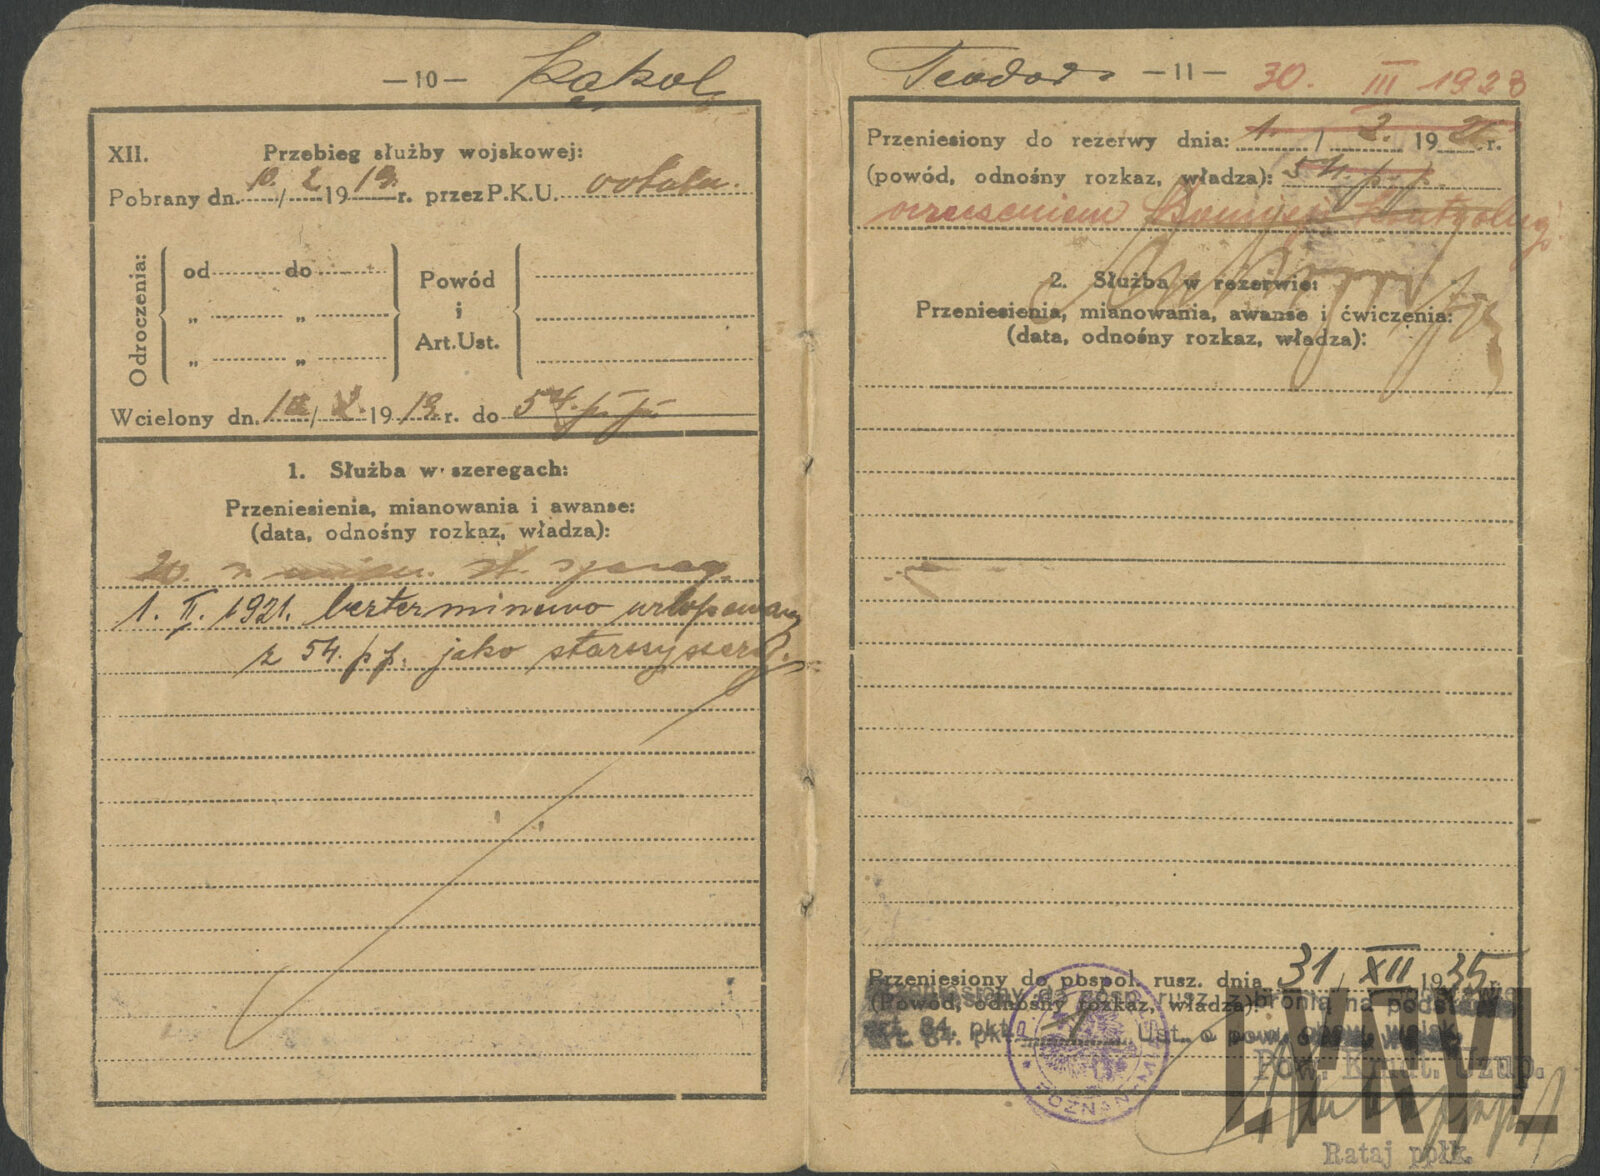 —10— Kąkol
XII. Przebieg służby wojskowej:
Pobrany dn. 10. / 2 1919. r. przez P.K.U. ochotn.
Odroczenia:
od do
„ „
„ „
Powód
i
Art.Ust.
Wcielony dn. 10/ 2. 1919. r. do 54. p. p.
1. Służba w szeregach:
Przeniesienia, mianowania i awanse:
(data, odnośny rozkaz, władza):
20. st.
1. II. 1921. bezterminowo urlopowany
z 54. pp. jako starszy szereg.
Teodor —11— 30. III 1928
Przeniesiony do rezerwy dnia: 1. / 2. 1921 r.
(powód, odnośny rozkaz, władza): 54. p. p.
orzeczeniem Komisji
2. Służba w rezerwie:
Przeniesienia, mianowania, awanse i ćwiczenia:
(data, odnośny rozkaz, władza):
Przeniesiony do pospol. rusz. dnia 31 / XII 1935 r.
(Powód, odnośny rozkaz, władza):
Przeniesiony do posp. rusz. z bronią na podstawie
art. 84. pkt. Ust. o pow. obow. wojsk.
POZNAŃ
Pow. Kmdt. Uzup.
Rataj ppłk.